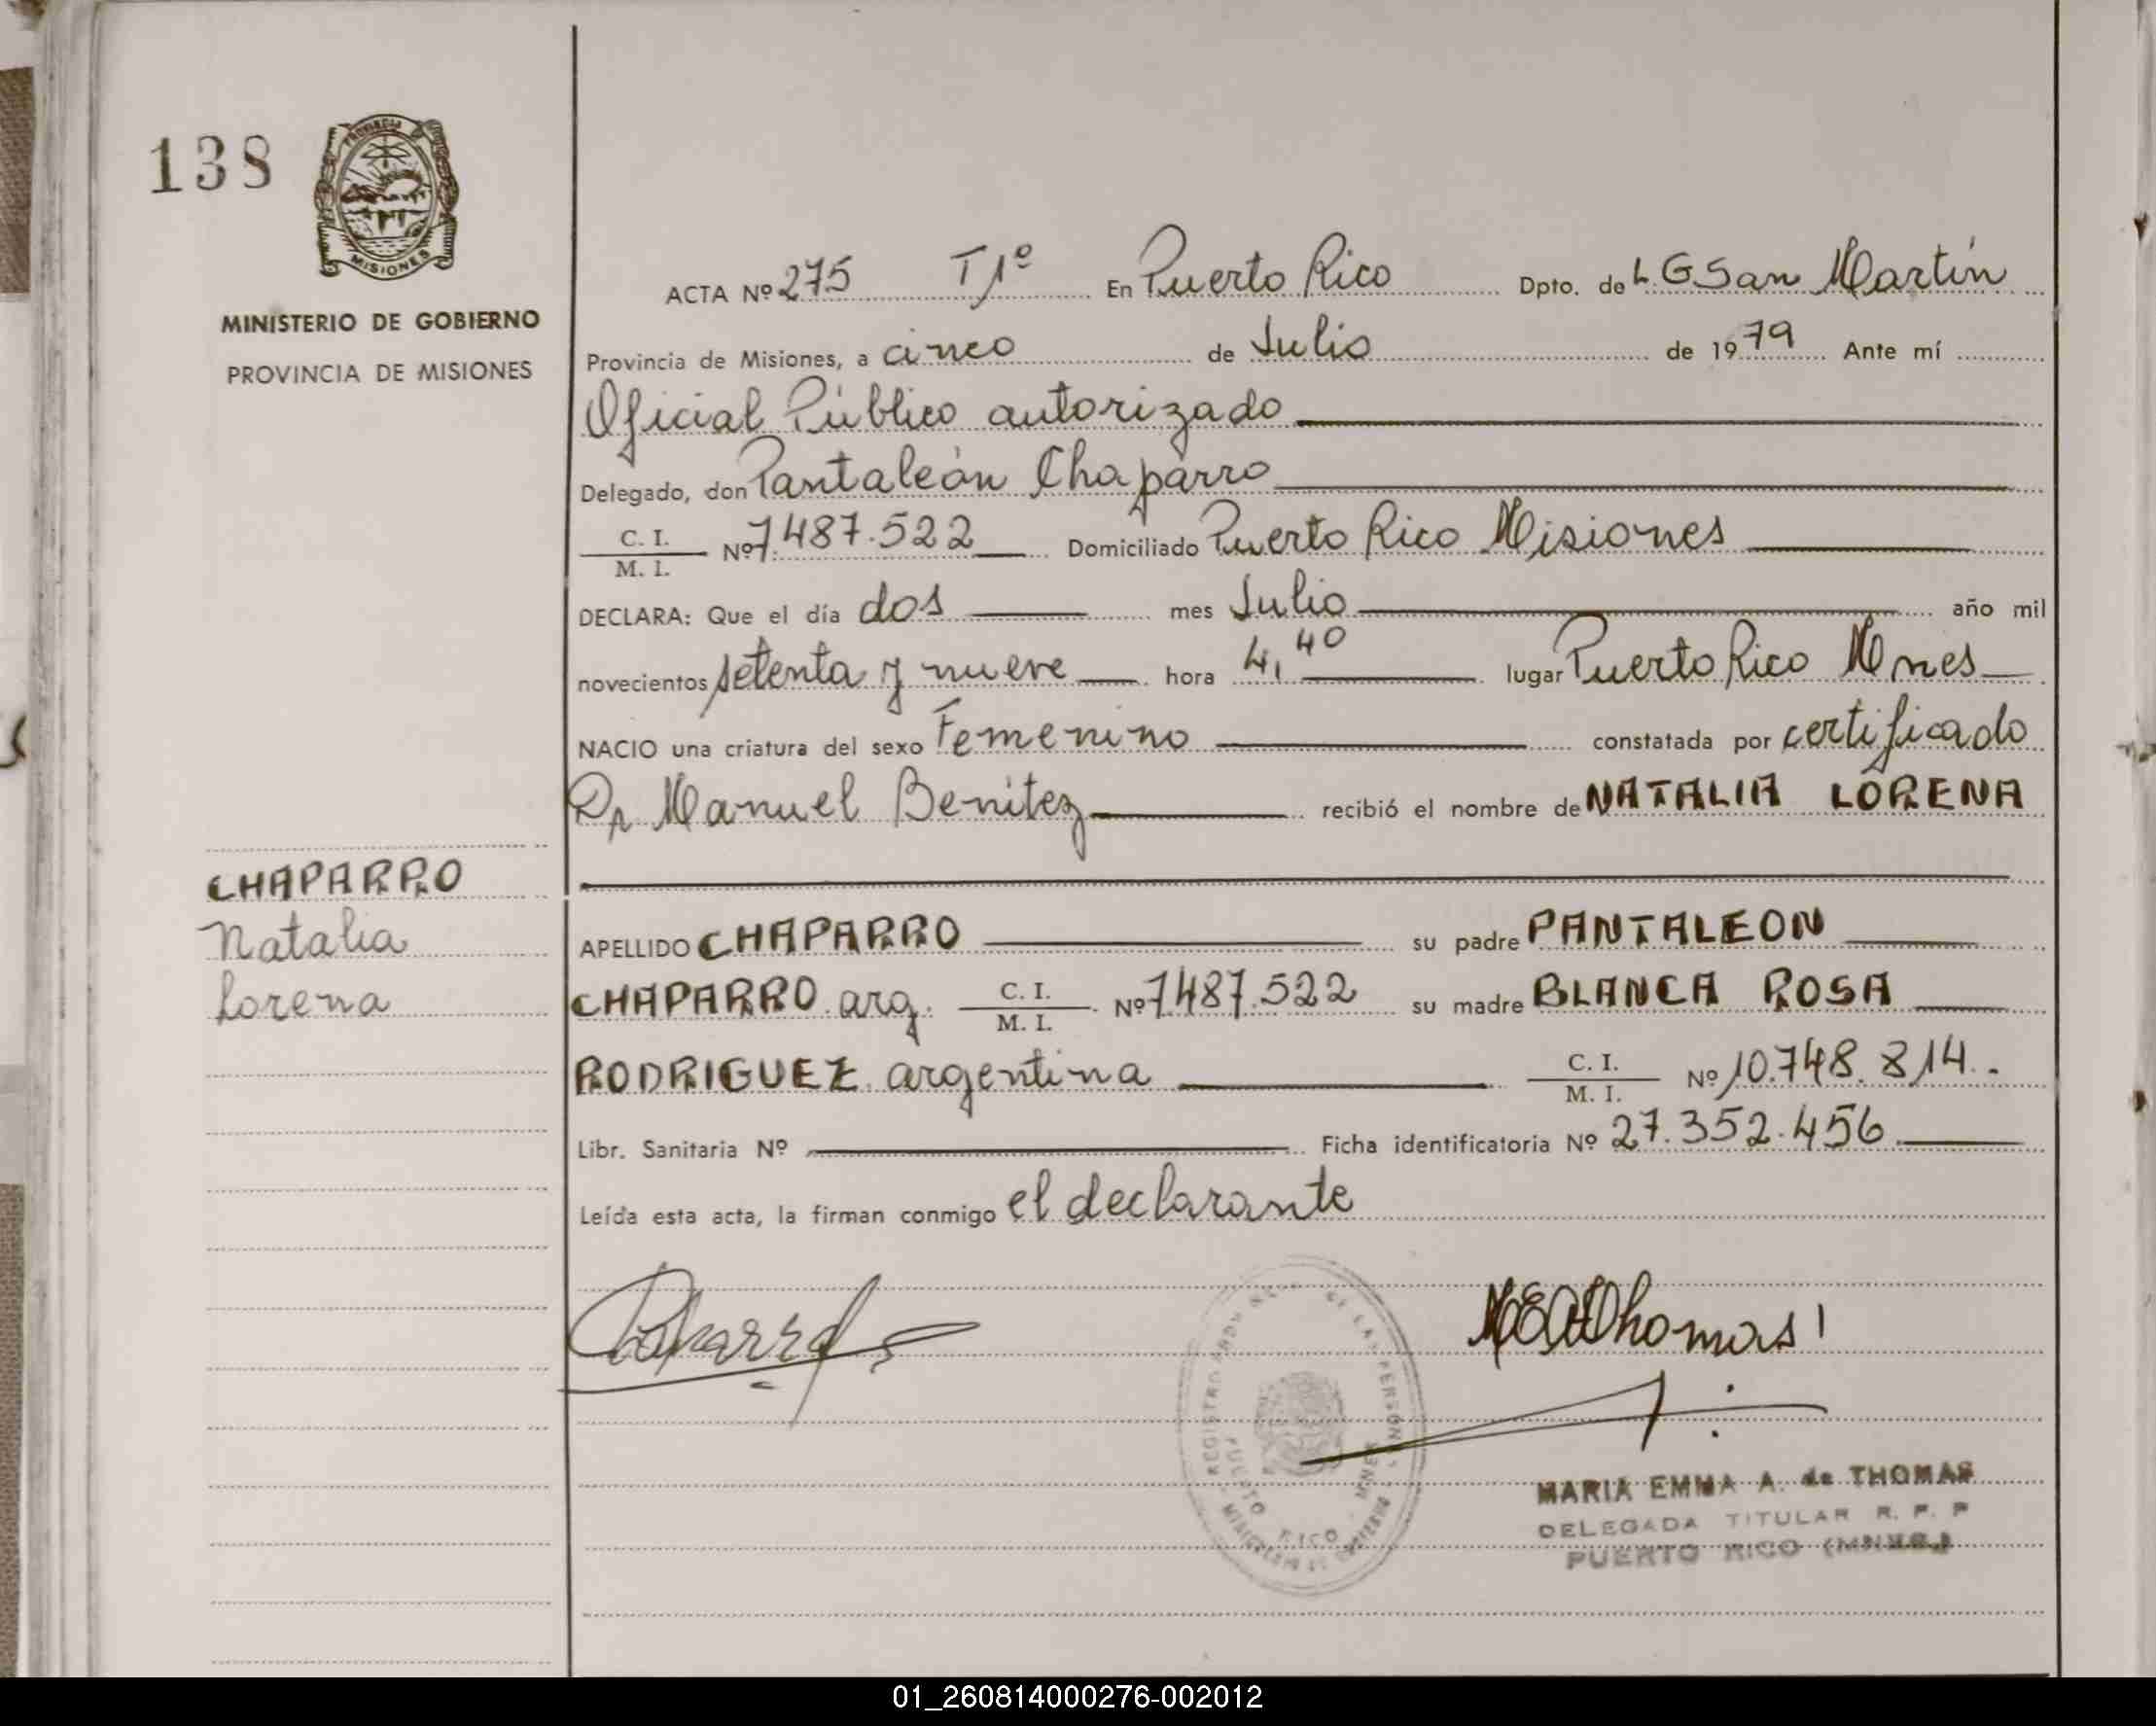 138
PROVINCIA
MISIONES
MINISTERIO DE GOBIERNO
PROVINCIA DE MISIONES
ACTA Nº 275 T 1º En Puerto Rico Dpto. de L. G San Martín
Provincia de Misiones, a cinco de Julio de 1979 Ante mí
Oficial Público autorizado
Delegado, don Pantaleón Chaparro
C. I.
M. I. Nº 7.487.522 Domiciliado Puerto Rico Misiones
DECLARA: Que el día dos mes Julio año mil
novecientos setenta y nueve hora 4,40 lugar Puerto Rico Mnes
NACIO una criatura del sexo Femenino constatada por certificado
Dr Manuel Benítez recibió el nombre de NATALIA LORENA
CHAPARRO
Natalia
Lorena
APELLIDO CHAPARRO su padre PANTALEON
CHAPARRO arg. C. I. M. I. Nº 7.487.522 su madre BLANCA ROSA
RODRIGUEZ argentina C. I. M. I. Nº 10.748.814.
Libr. Sanitaria Nº Ficha identificatoria Nº 27.352.456
Leída esta acta, la firman conmigo el declarante
Chaparro
Thomas
MARIA EMMA A. de THOMAS
DELEGADA TITULAR R. P. P
PUERTO RICO (MNES.)
REGISTRO DE LAS PERSONAS
PUERTO RICO MNES
MINISTERIO DE GOBIERNO
01_260814000276-002012